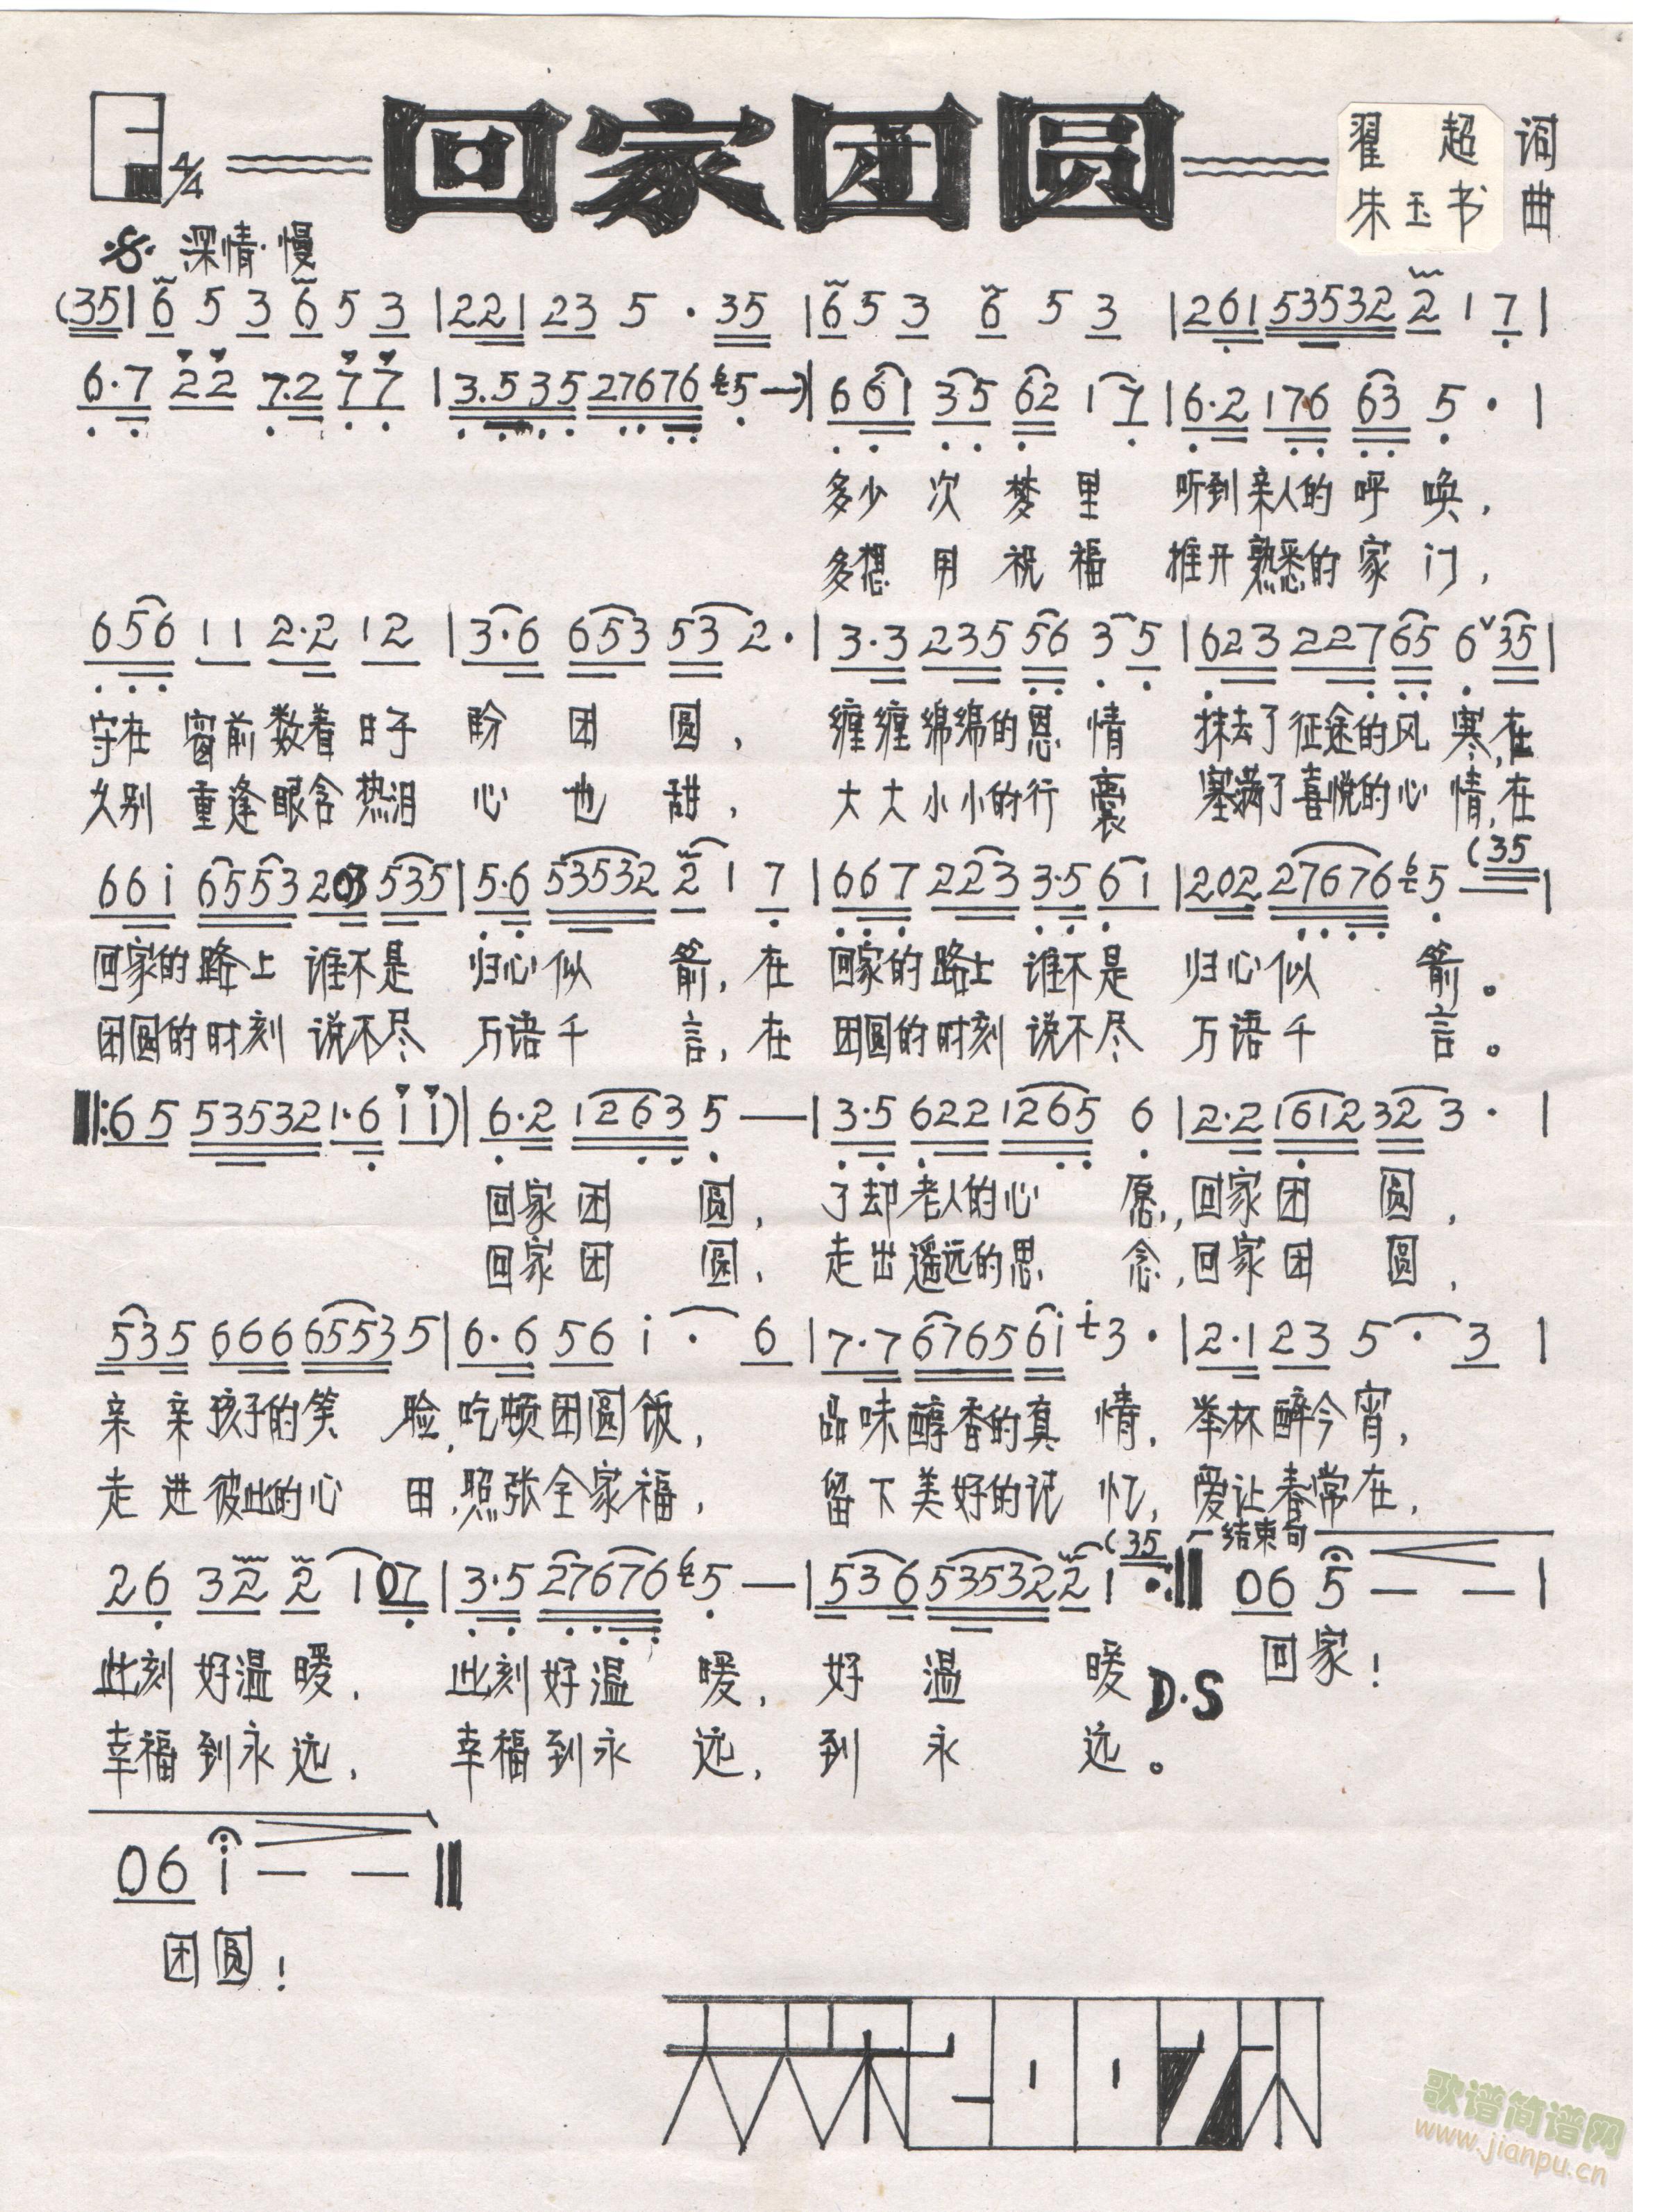 回家团圆
4/4
翟 超 词
朱玉书 曲
深情·慢
(35|6 5 3 6 5 3 |221 23 5 · 35 |6 5 3 6 5 3 |261 53532 2 1 7|
6·7 22 7·2 77 |3.535 27676 5 —)|661 35 62 17|6·2 176 63 5 · |
多少次梦里 听到亲人的呼唤,
多想用祝福 推开熟悉的家门,
656 11 2·2 12 |3·6 653 53 2·|3·3 235 56 3 5|623 227 65 6 35|
守在窗前数着日子 盼团圆, 缠缠绵绵的恩情 抹去了征途的风寒,在
久别重逢眼含热泪 心也甜, 大大小小的行囊 塞满了喜悦的心情,在
66i 6553 203 535|5·6 53532 2 1 7 |667 223 3·5 61|202 27676 5 (35|
回家的路上 谁不是 归心似箭,在 回家的路上 谁不是 归心似箭。
团圆的时刻 说不尽 万语千言,在 团圆的时刻 说不尽 万语千言。
‖:65 53532 1·6 ii)|6·2 1263 5 —|3·5 622 1265 6|2·2 1612 32 3· |
回家团圆, 了却老人的心愿,回家团圆,
回家团圆, 走出遥远的思念,回家团圆,
535 666 6553 5|6·6 56 i · 6 |7·7 6765 6i 3·|2·1 23 5 · 3 |
亲亲孩子的笑脸,吃顿团圆饭, 品味醇香的真情,举杯醉今宵,
走进彼此的心田,照张全家福, 留下美好的记忆,爱让春常在,
结束句
26 32 2 1 07|3·5 27676 5 —|536 53532 2 1 (35 :‖ 06 5 — — |
此刻好温暖, 此刻好温暖, 好温暖 D·S 回家!
幸福到永远, 幸福到永远, 到永远。
06 i — — ‖
团圆!
歌谱简谱网
www.jianpu.cn